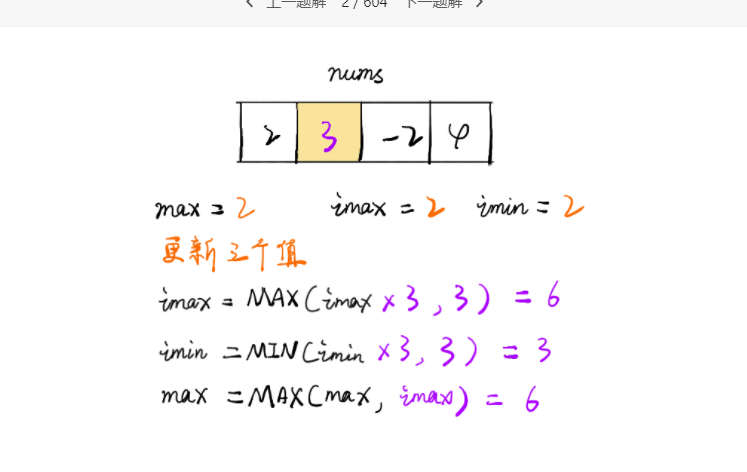 上一题解 2 / 604 下一题解
nums
2 3 -2 4
max = 2 imax = 2 imin = 2
更新三个值
imax = MAX(imax x 3, 3) = 6
imin = MIN(imin x 3, 3) = 3
max = MAX(max, imax) = 6